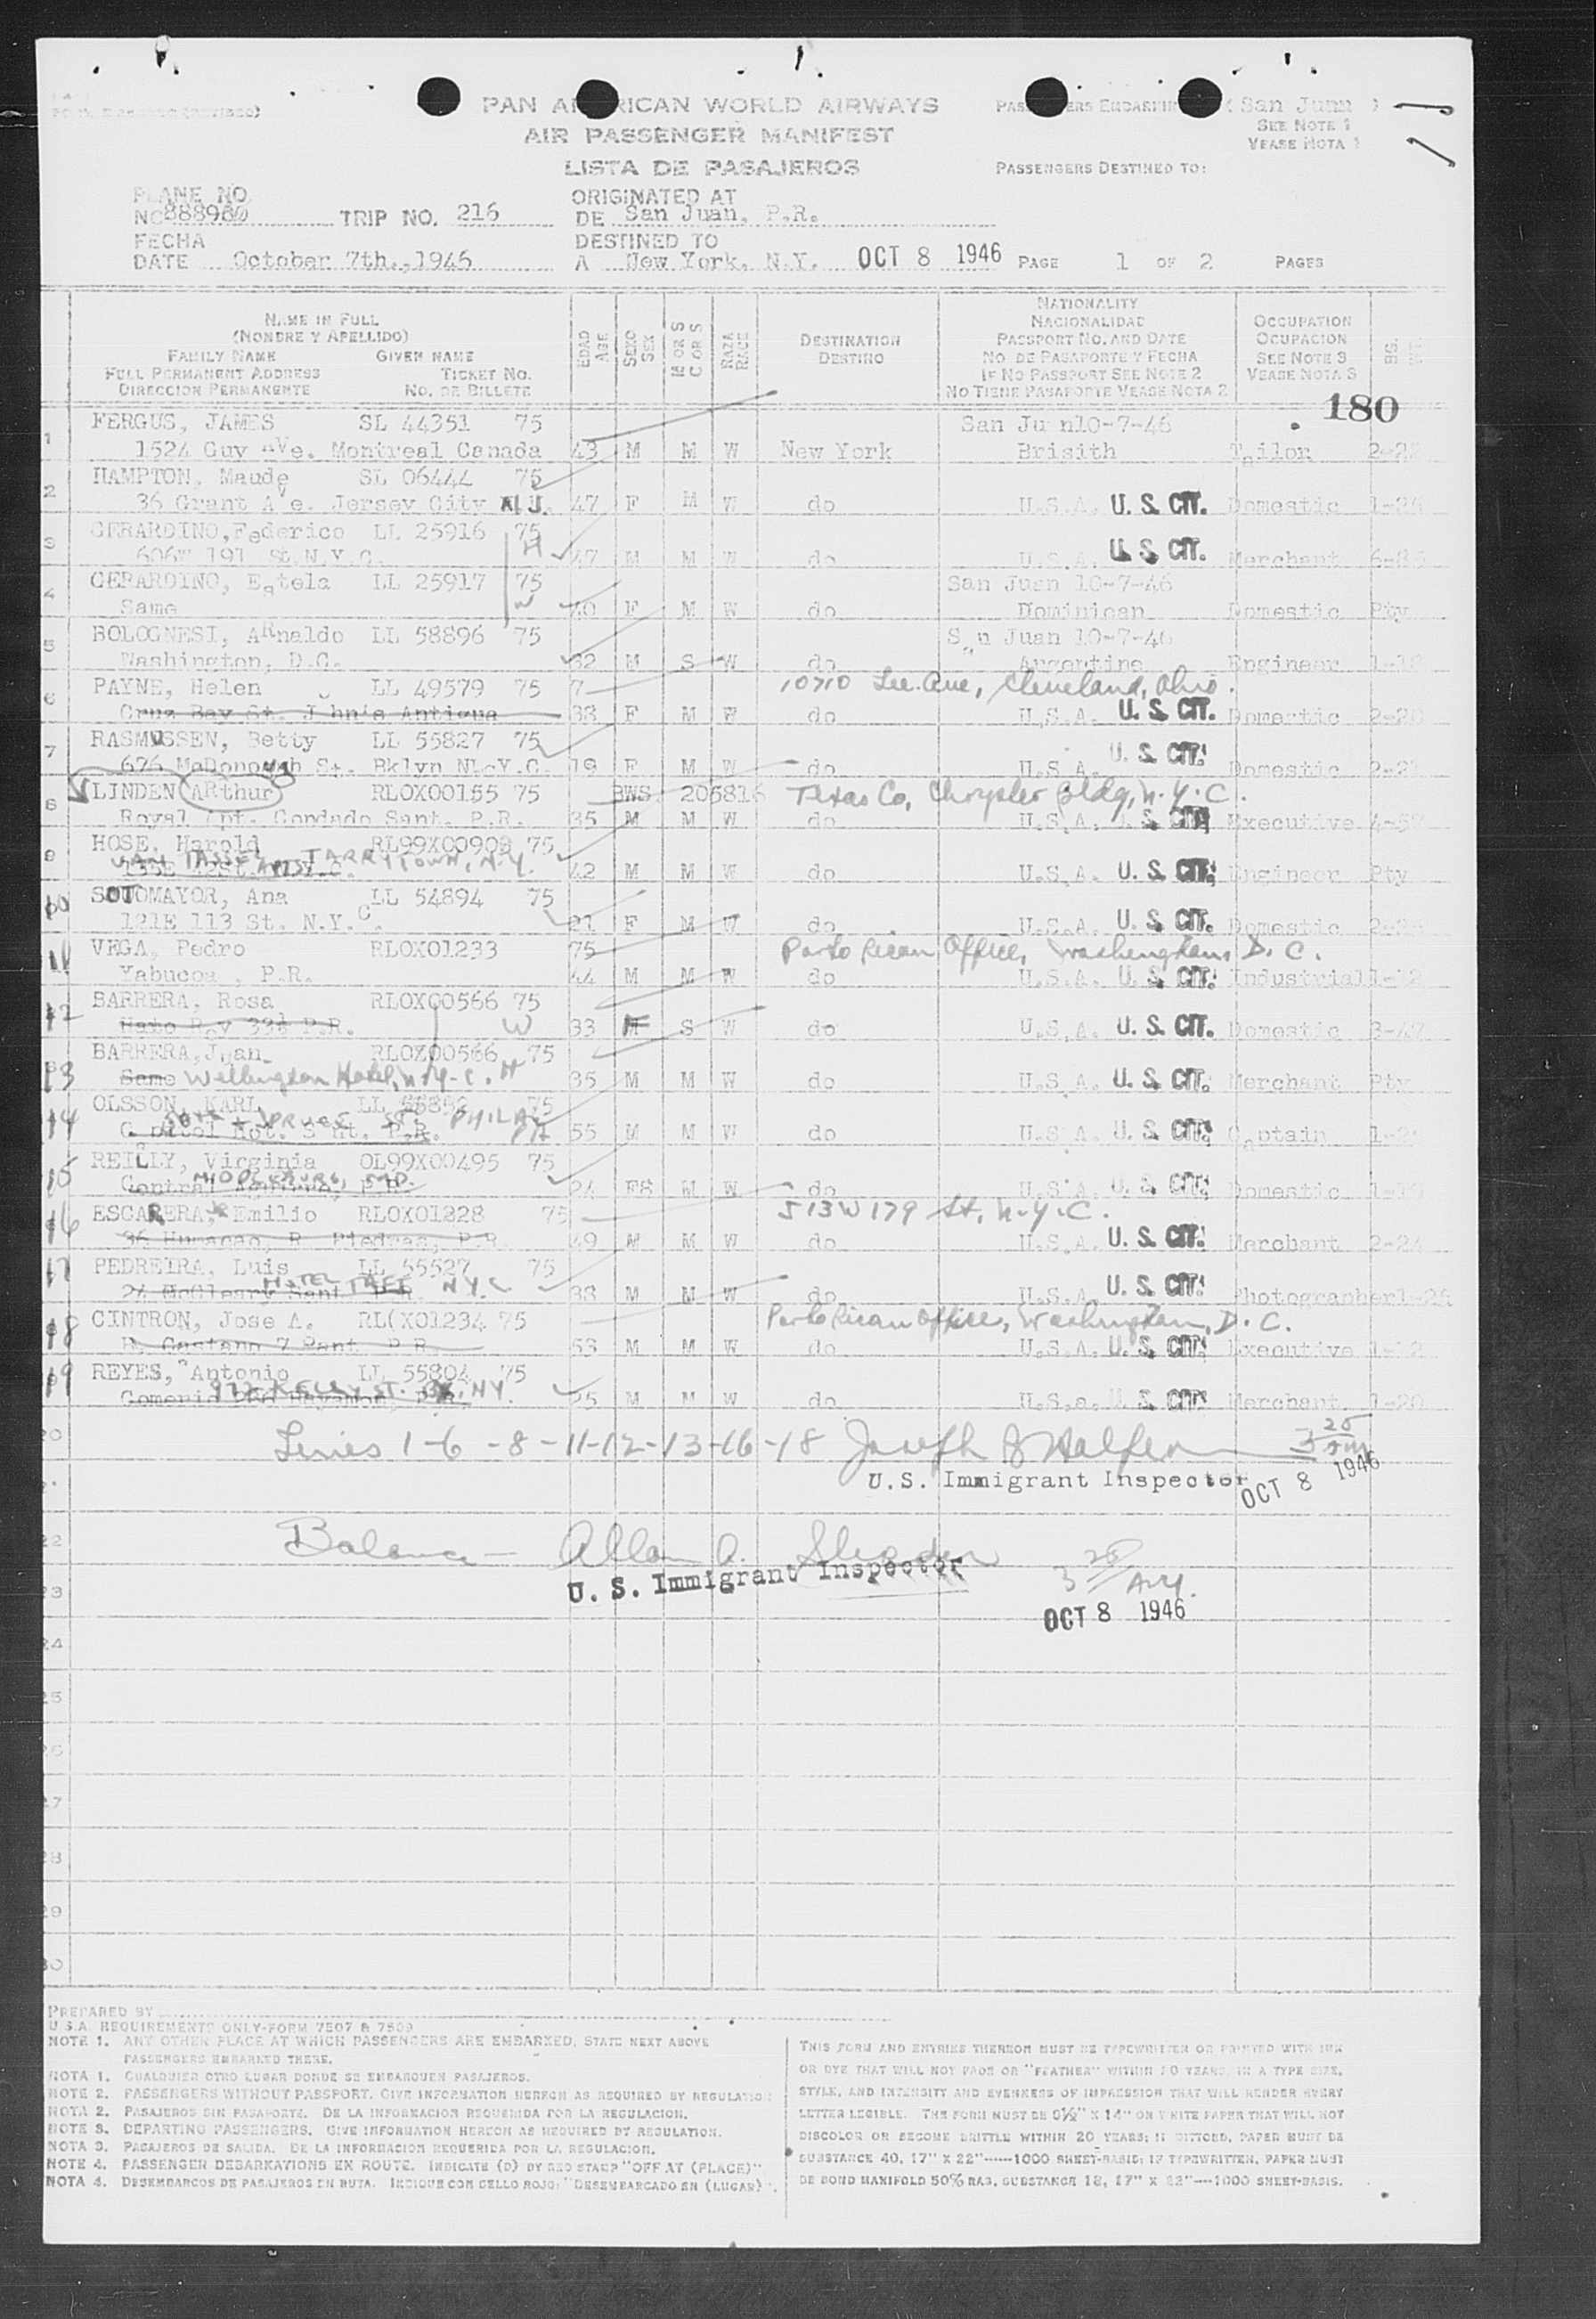 PAN AMERICAN WORLD AIRWAYS
AIR PASSENGER MANIFEST
LISTA DE PASAJEROS
(San Juan)
SEE NOTE 1
VEASE NOTA 1
PASSENGERS DESTINED TO:
PLANE NO.
NC888980 TRIP NO. 216
ORIGINATED AT
DE San Juan, P.R.
FECHA
DATE October 7th.,1946
DESTINED TO
A New York, N.Y. OCT 8 1946 PAGE 1 OF 2 PAGES
NAME IN FULL
(NOMBRE Y APELLIDO)
FAMILY NAME GIVEN NAME
FULL PERMANENT ADDRESS TICKET NO.
DIRECCION PERMANENTE NO. DE BILLETE
EDAD AGE
SEXO SEX
M OR S C OR S
RAZA RACE
DESTINATION
DESTINO
NATIONALITY
NACIONALIDAD
PASSPORT NO. AND DATE
NO. DE PASAPORTE Y FECHA
IF NO PASSPORT SEE NOTE 2
NO TIENE PASAPORTE VEASE NOTA 2
OCCUPATION
OCUPACION
SEE NOTE 3
VEASE NOTA 3
180
1 FERGUS, JAMES SL 44351 75 San Ju n10-7-46
1524 Guy Ave. Montreal Canada 43 M M W New York Brisith Tailor
2 HAMPTON, Maude SL 06444 75
36 Grant Ave. Jersey City N.J. 47 F M W do U.S.A. U. S. CIT. Domestic
3 GERARDINO,Federico LL 25916 75 H
606W 191 St.N.Y.C. 47 M M W do U.S.A. U. S. CIT. Merchant
4 GERARDINO, Estela LL 25917 75 San Juan 10-7-46
Same W 40 F M W do Dominican Domestic Pty
5 BOLOGNESI, Arnaldo LL 58896 75 San Juan 10-7-46
Washington, D.C. 32 M S W do Argentine Engineer
6 PAYNE, Helen LL 49579 75 10710 Lee Ave, Cleveland, Ohio.
Cruz Bay St. J hn's Antigua 38 F M W do U.S.A. U. S. CIT. Domestic
7 RASMUSSEN, Betty LL 55827 75 U. S. CIT.
676 McDonough St. Bklyn N.Y.C. 19 F M W do U.S.A. Domestic
8 LINDEN Arthur RLOX00155 75 BWS 205816 Texas Co, Chrysler Bldg, N.Y.C.
Royal Apt. Condado Sant. P.R. 35 M M W do U.S.A. U. S. CIT. Executive
9 HOSE, Harold RL99X00908 75
VAN TASSEL APTS TARRYTOWN, N.Y. 42 M M W do U.S.A. U. S. CIT. Engineer Pty
10 SOTOMAYOR, Ana LL 54894 75
121E 113 St. N.Y.C. 21 F M W do U.S.A. U. S. CIT. Domestic
11 VEGA, Pedro RLOX01233 75 Porto Rican Office, Washington, D.C.
Yabucoa , P.R. 44 M M W do U.S.A. U. S. CIT. Industrial
12 BARRERA, Rosa RLOX00566 75
W 33 F S W do U.S.A. U. S. CIT. Domestic
13 BARRERA,Juan RLOX00566 75
Same Wellington Hotel, N.Y.C. H 35 M M W do U.S.A. U. S. CIT. Merchant Pty
14 OLSSON, KARL LL 75
SPRUCE ST. PHILA PA 55 M M W do U.S.A. U. S. CIT. Captain
15 REILLY, Virginia OL99X00495 75
24 FS M W do U.S.A. U. S. CIT. Domestic
16 ESCARERA, Emilio RLOX01228 75 513 W 179 St, N.Y.C.
36 Humacao, R Piedras, P.R. 49 M M W do U.S.A. U. S. CIT. Merchant 2-24
17 PEDREIRA, Luis LL 55527 75
24 McCleary Sant HOTEL TAFT N.Y.C 38 M M W do U.S.A. U. S. CIT. Photographer
18 CINTRON, Jose A. RL(X01234 75 Porto Rican Office, Washington, D.C.
53 M M W do U.S.A. U. S. CIT. Executive
19 REYES, Antonio LL 55804 75
972 KELLY ST. BX, NY. 25 M M W do U.S.a. U. S. CIT. Merchant 1-20
Lines 1-6-8-11-12-13-16-18 Joseph B Halfern 3 25 am
U.S. Immigrant Inspector OCT 8 1946
Balance - Allan A.
U. S. Immigrant Inspector 3 25 AM.
OCT 8 1946
PREPARED BY
U.S.A. REQUIREMENTS ONLY-FORM 7507 & 7509
NOTE 1. ANY OTHER PLACE AT WHICH PASSENGERS ARE EMBARKED, STATE NEXT ABOVE
PASSENGERS EMBARKED THERE.
NOTA 1. CUALQUIER OTRO LUGAR DONDE SE EMBARQUEN PASAJEROS.
NOTE 2. PASSENGERS WITHOUT PASSPORT. GIVE INFORMATION HEREON AS REQUIRED BY REGULATION
NOTA 2. PASAJEROS SIN PASAPORTE. DE LA INFORMACION REQUERIDA POR LA REGULACION.
NOTE 3. DEPARTING PASSENGERS. GIVE INFORMATION HEREON AS REQUIRED BY REGULATION.
NOTA 3. PASAJEROS DE SALIDA. DE LA INFORMACION REQUERIDA POR LA REGULACION.
NOTE 4. PASSENGER DEBARKATIONS EN ROUTE. INDICATE (D) BY RED STAMP "OFF AT (PLACE)"
NOTA 4. DESEMBARCOS DE PASAJEROS EN RUTA. INDIQUE CON SELLO ROJO: "DESEMBARCADO EN (LUGAR)".
THIS FORM AND ENTRIES THEREON MUST BE TYPEWRITTEN OR PRINTED WITH INK
OR DYE THAT WILL NOT FADE OR "FEATHER" WITHIN 20 YEARS, IN A TYPE SIZE,
STYLE, AND INTENSITY AND EVENNESS OF IMPRESSION THAT WILL RENDER EVERY
LETTER LEGIBLE. THE FORM MUST BE 8½" X 14" ON WHITE PAPER THAT WILL NOT
DISCOLOR OR BECOME BRITTLE WITHIN 20 YEARS; IF DITTOED, PAPER MUST BE
SUBSTANCE 40, 17" X 22"-----1000 SHEET-BASIS; IF TYPEWRITTEN, PAPER MUST
BE BOND MANIFOLD 50% RAG, SUBSTANCE 18, 17" X 22"----1000 SHEET-BASIS.